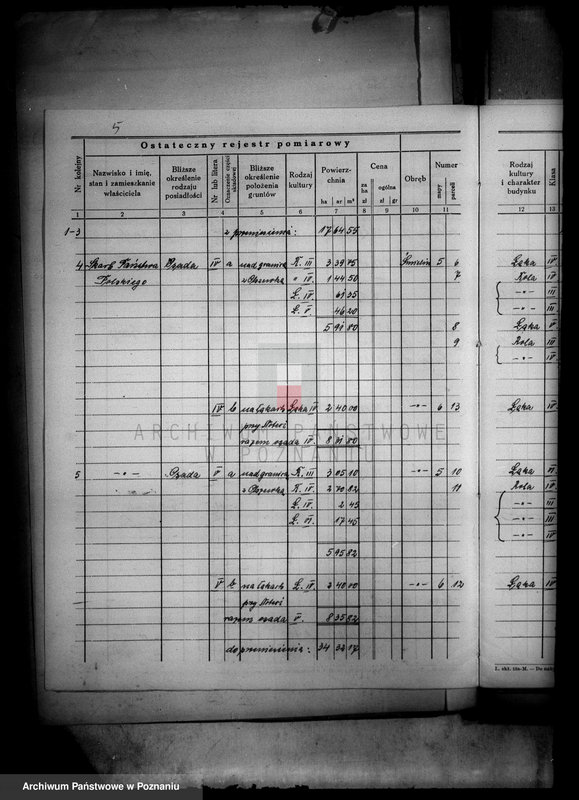 5
Ostateczny rejestr pomiarowy
Nr. kolejny
Nazwisko i imię, stan i zamieszkanie właściciela
Bliższe określenie rodzaju posiadłości
Nr lub litera
Oznaczenie części składowej
Bliższe określenie położenia gruntów
Rodzaj kultury
Powierzchnia
ha ar m²
Cena
za ha zł
ogólna zł gr
Obręb
Numer
mapy
parceli
Rodzaj kultury i charakter budynku
Klasa
1 2 3 4 5 6 7 8 9 10 11 12 13
1-3 z przeniesienia: 17 64 55
4 Skarb Państwa Osada IV a nad granicą R. III 3 39 75 5 6 Łąka IV
Polskiego " IV 1 44 50 7 Rola IV
Ł. IV 61 35 -"- III
Ł. V 46 20 -"- III
5 91 80 8 Łąka V
9 Rola III
-"- IV
IV b na łąkach Łąka IV 2 40 00 -"- 6 13 Łąka IV
przy
razem osada IV. 8 31 80
ARCHIWUM PAŃSTWOWE
W POZNANIU
5 -"- Osada V a nad granicą R. III 3 05 10 -"- 5 10 Łąka VI
R. IV. 2 70 82 11 Rola IV
Ł. IV. 2 45 -"- III
Ł. VI 17 45 -"- III
-"- IV
5 95 82
V b na łąkach Ł. IV. 2 40 00 -"- 6 12 Łąka IV
przy
razem osada V. 8 35 82
do przeniesienia: 34 32 17
Archiwum Państwowe w Poznaniu